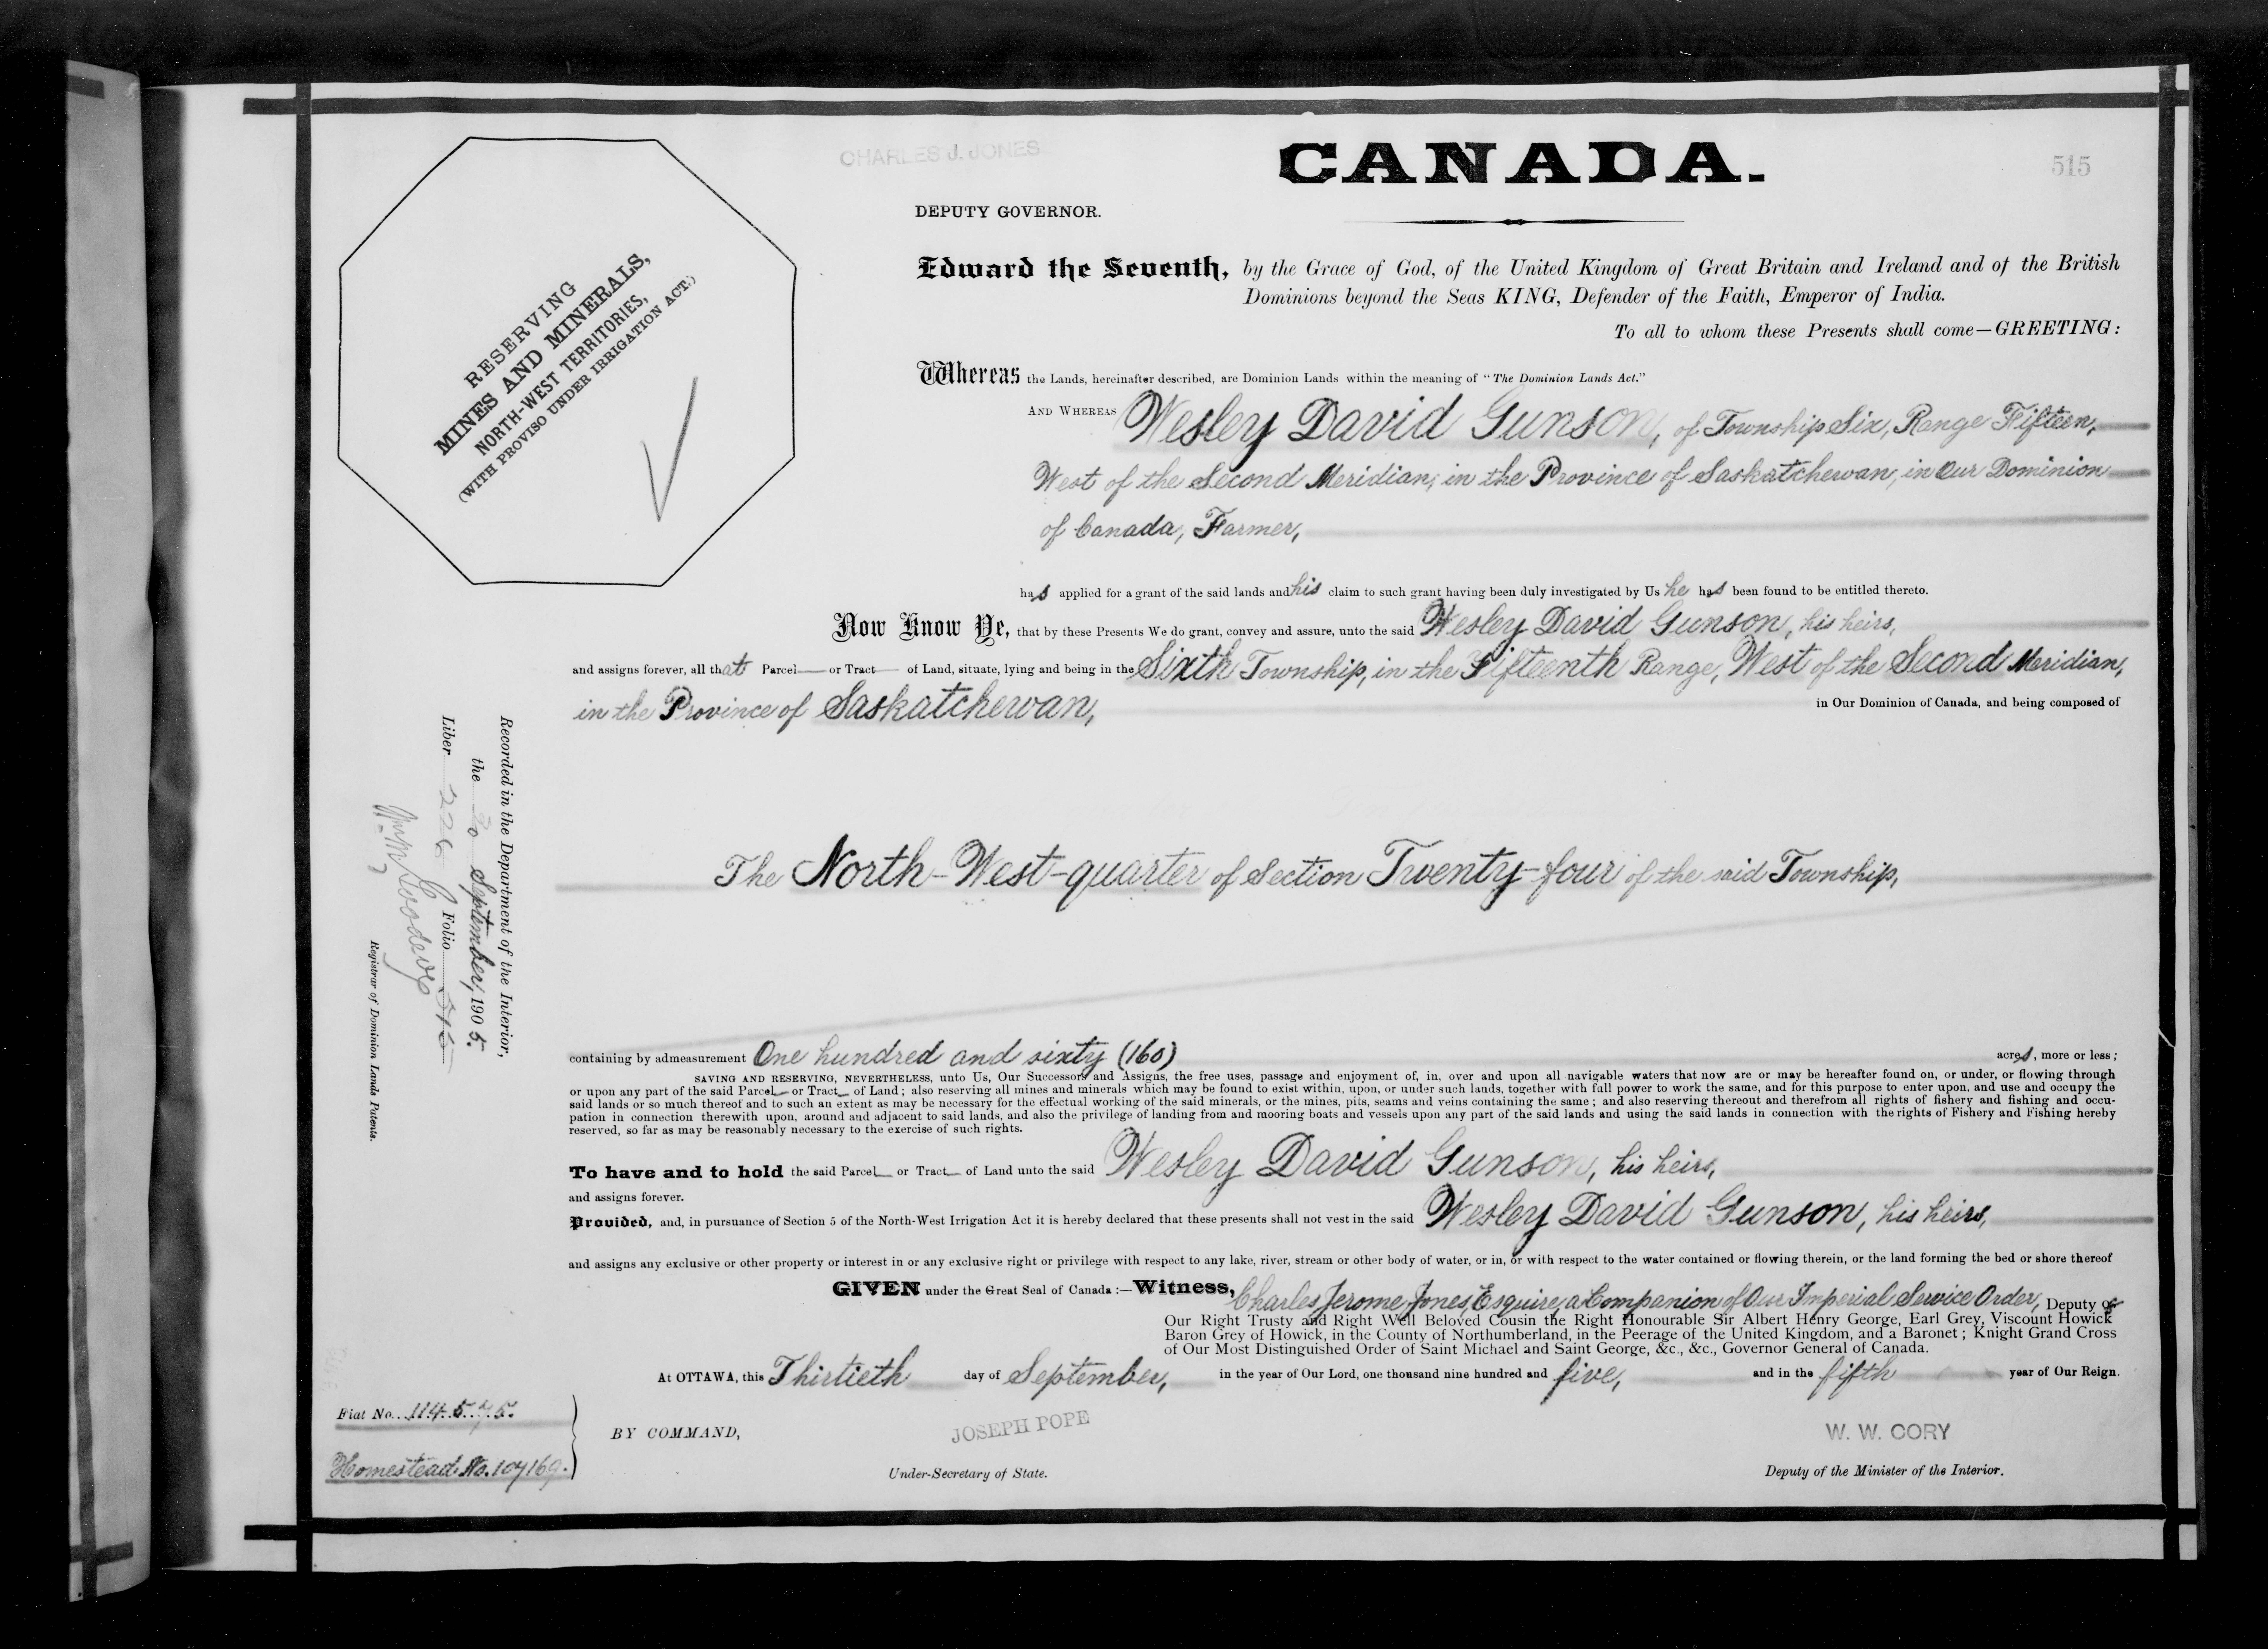 CHARLES J. JONES
CANADA.
515
DEPUTY GOVERNOR.
RESERVING
MINES AND MINERALS,
NORTH-WEST TERRITORIES,
(WITH PROVISO UNDER IRRIGATION ACT.)
Edward the Seventh, by the Grace of God, of the United Kingdom of Great Britain and Ireland and of the British
Dominions beyond the Seas KING, Defender of the Faith, Emperor of India.
To all to whom these Presents shall come—GREETING:
Whereas the Lands, hereinafter described, are Dominion Lands within the meaning of "The Dominion Lands Act."
AND WHEREAS Wesley David Gunson, of Township Six, Range Fifteen,
West of the Second Meridian, in the Province of Saskatchewan, in Our Dominion
of Canada, Farmer,
has applied for a grant of the said lands and his claim to such grant having been duly investigated by Us he has been found to be entitled thereto.
Now Know Ye, that by these Presents We do grant, convey and assure, unto the said Wesley David Gunson, his heirs,
and assigns forever, all that Parcel or Tract of Land, situate, lying and being in the Sixth Township, in the Fifteenth Range, West of the Second Meridian,
in the Province of Saskatchewan, in Our Dominion of Canada, and being composed of
The North-West-quarter of Section Twenty-four of the said Township,
containing by admeasurement One hundred and sixty (160) acres, more or less;
SAVING AND RESERVING, NEVERTHELESS, unto Us, Our Successors and Assigns, the free uses, passage and enjoyment of, in, over and upon all navigable waters that now are or may be hereafter found on, or under, or flowing through
or upon any part of the said Parcel or Tract of Land; also reserving all mines and minerals which may be found to exist within, upon, or under such lands, together with full power to work the same, and for this purpose to enter upon, and use and occupy the
said lands or so much thereof and to such an extent as may be necessary for the effectual working of the said minerals, or the mines, pits, seams and veins containing the same; and also reserving thereout and therefrom all rights of fishery and fishing and occu-
pation in connection therewith upon, around and adjacent to said lands, and also the privilege of landing from and mooring boats and vessels upon any part of the said lands and using the said lands in connection with the rights of Fishery and Fishing hereby
reserved, so far as may be reasonably necessary to the exercise of such rights.
To have and to hold the said Parcel or Tract of Land unto the said Wesley David Gunson, his heirs,
and assigns forever.
Provided, and, in pursuance of Section 5 of the North-West Irrigation Act it is hereby declared that these presents shall not vest in the said Wesley David Gunson, his heirs,
and assigns any exclusive or other property or interest in or any exclusive right or privilege with respect to any lake, river, stream or other body of water, or in, or with respect to the water contained or flowing therein, or the land forming the bed or shore thereof
GIVEN under the Great Seal of Canada:—Witness, Charles Jerome Jones, Esquire, a Companion of Our Imperial Service Order, Deputy of
Our Right Trusty and Right Well Beloved Cousin the Right Honourable Sir Albert Henry George, Earl Grey, Viscount Howick
Baron Grey of Howick, in the County of Northumberland, in the Peerage of the United Kingdom, and a Baronet; Knight Grand Cross
of Our Most Distinguished Order of Saint Michael and Saint George, &c., &c., Governor General of Canada.
At OTTAWA, this Thirtieth day of September, in the year of Our Lord, one thousand nine hundred and five, and in the fifth year of Our Reign.
BY COMMAND,
JOSEPH POPE
Under-Secretary of State.
W. W. CORY
Deputy of the Minister of the Interior.
Fiat No. 114575.
Homestead No. 107169.
Recorded in the Department of the Interior,
the 30 September, 1905.
Liber 226 Folio 515
Registrar of Dominion Lands Patents.